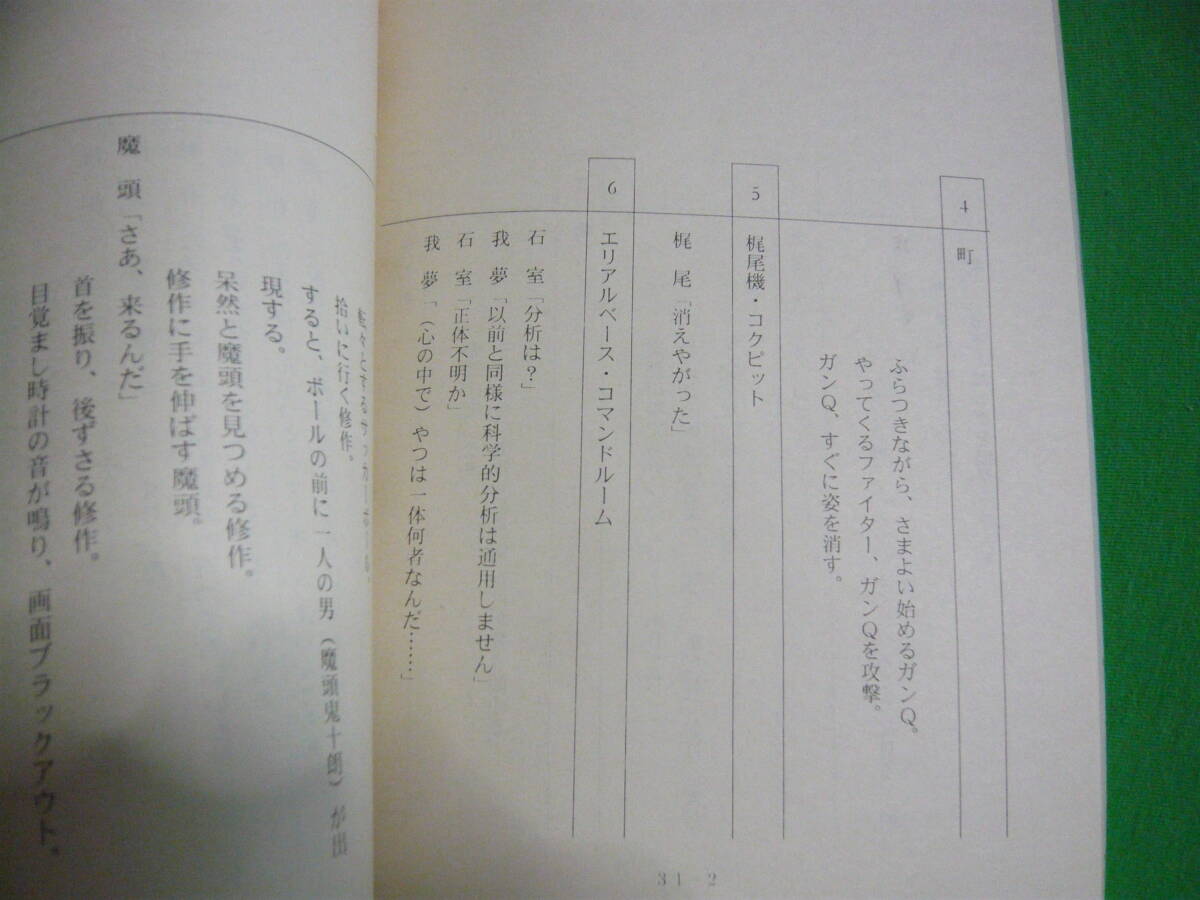 4 町
ふらつきながら、さまよい始めるガンQ。
やってくるファイター、ガンQを攻撃。
ガンQ、すぐに姿を消す。
5 梶尾機・コクピット
梶 尾「消えやがった」
6 エリアルベース・コマンドルーム
石 室「分析は?」
我 夢「以前と同様に科学的分析は通用しません」
石 室「正体不明か」
我 夢「(心の中で)やつは一体何者なんだ……」
31-2
拾いに行く修作。
すると、ボールの前に一人の男(魔頭鬼十朗)が出
現する。
呆然と魔頭を見つめる修作。
修作に手を伸ばす魔頭。
魔 頭「さあ、来るんだ」
首を振り、後ずさる修作。
目覚まし時計の音が鳴り、画面ブラックアウト。